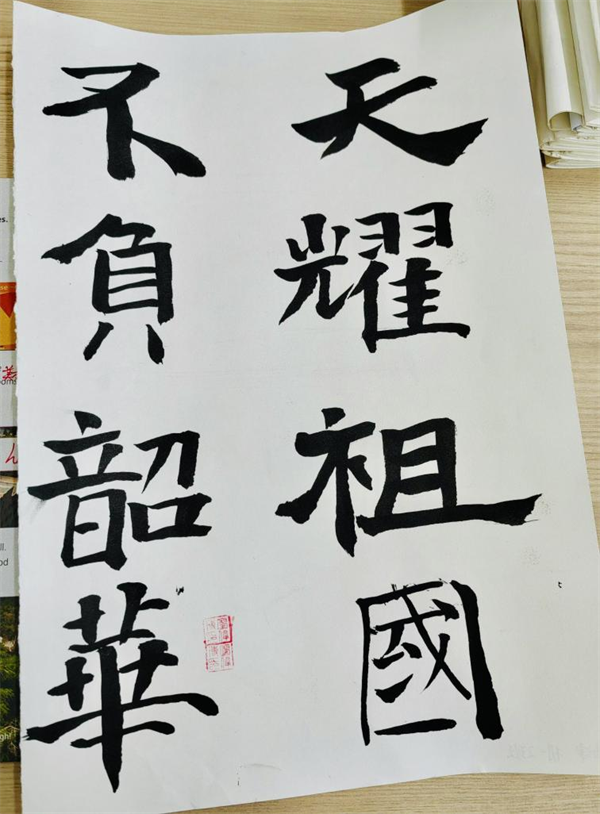 天耀祖國
不負韶華